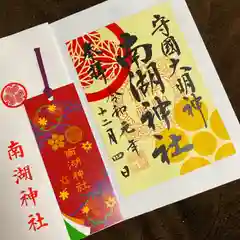 守國大明神
奉拝
南湖神社
令和元年
十二月四日
南湖神社
南湖神社